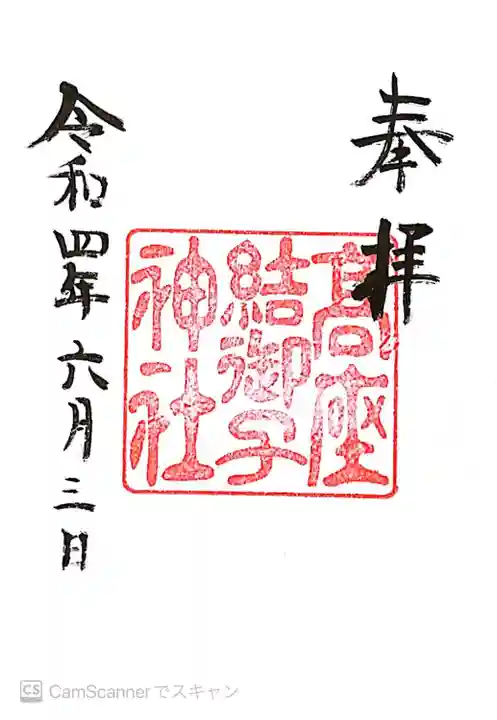 奉拝
高座
結御子
神社
令和四年六月三日
CS CamScannerでスキャン